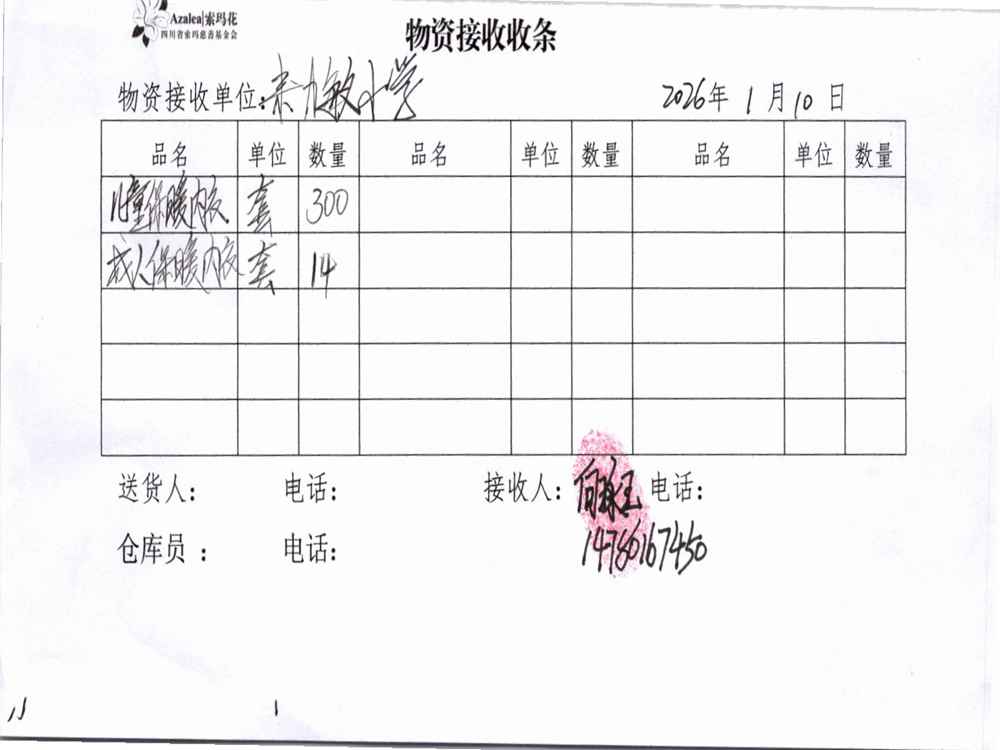 Azalea|索玛花
四川省索玛慈善基金会
物资接收收条
物资接收单位: 敏小学 2026年 1月10日
品名 单位 数量 品名 单位 数量 品名 单位 数量
儿童保暖内衣 套 300
成人保暖内衣 套 14
送货人: 电话: 接收人: 电话:
仓库员 : 电话: 14780167450